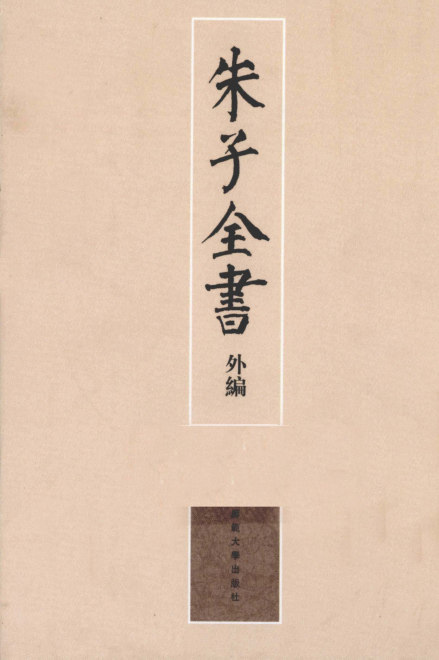 朱子全書
外編
師範大學出版社